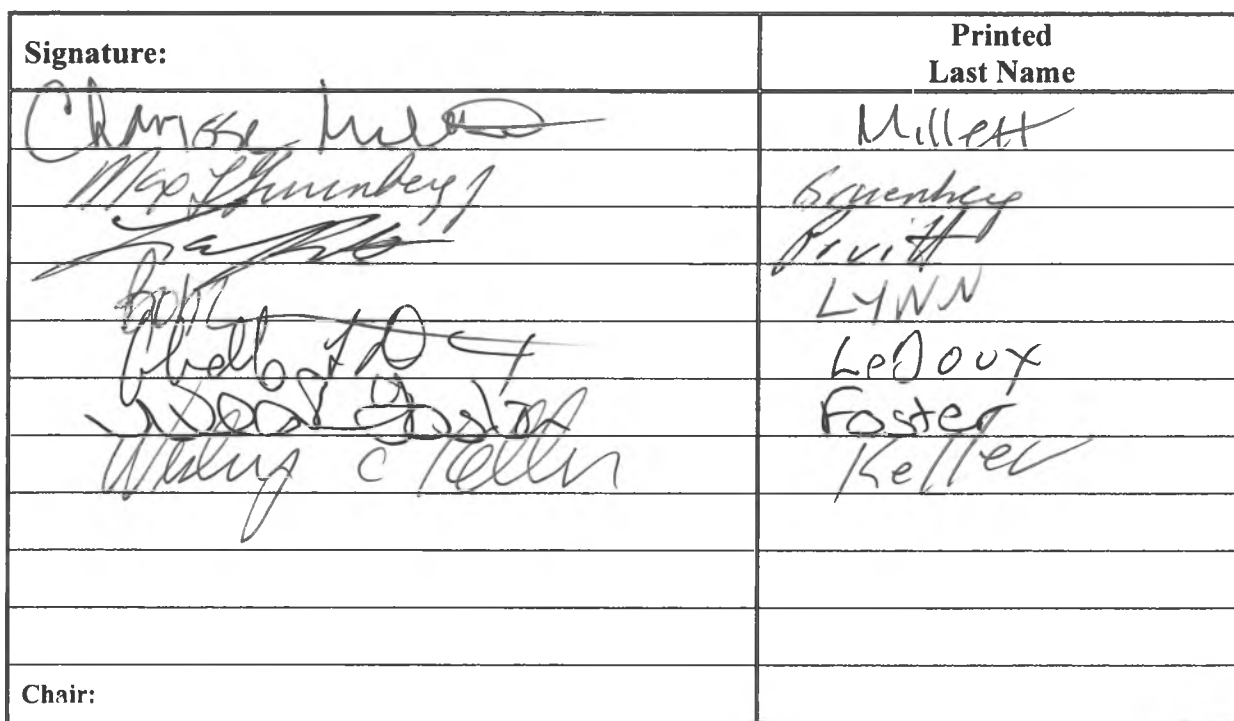 Signature: Printed Last Name
Charisse Millett
Max F Gruenberg J Gruenberg
Pruitt
Bob L LYNN
LeDoux
Foster Foster
Wesley C Keller Keller
Chair: